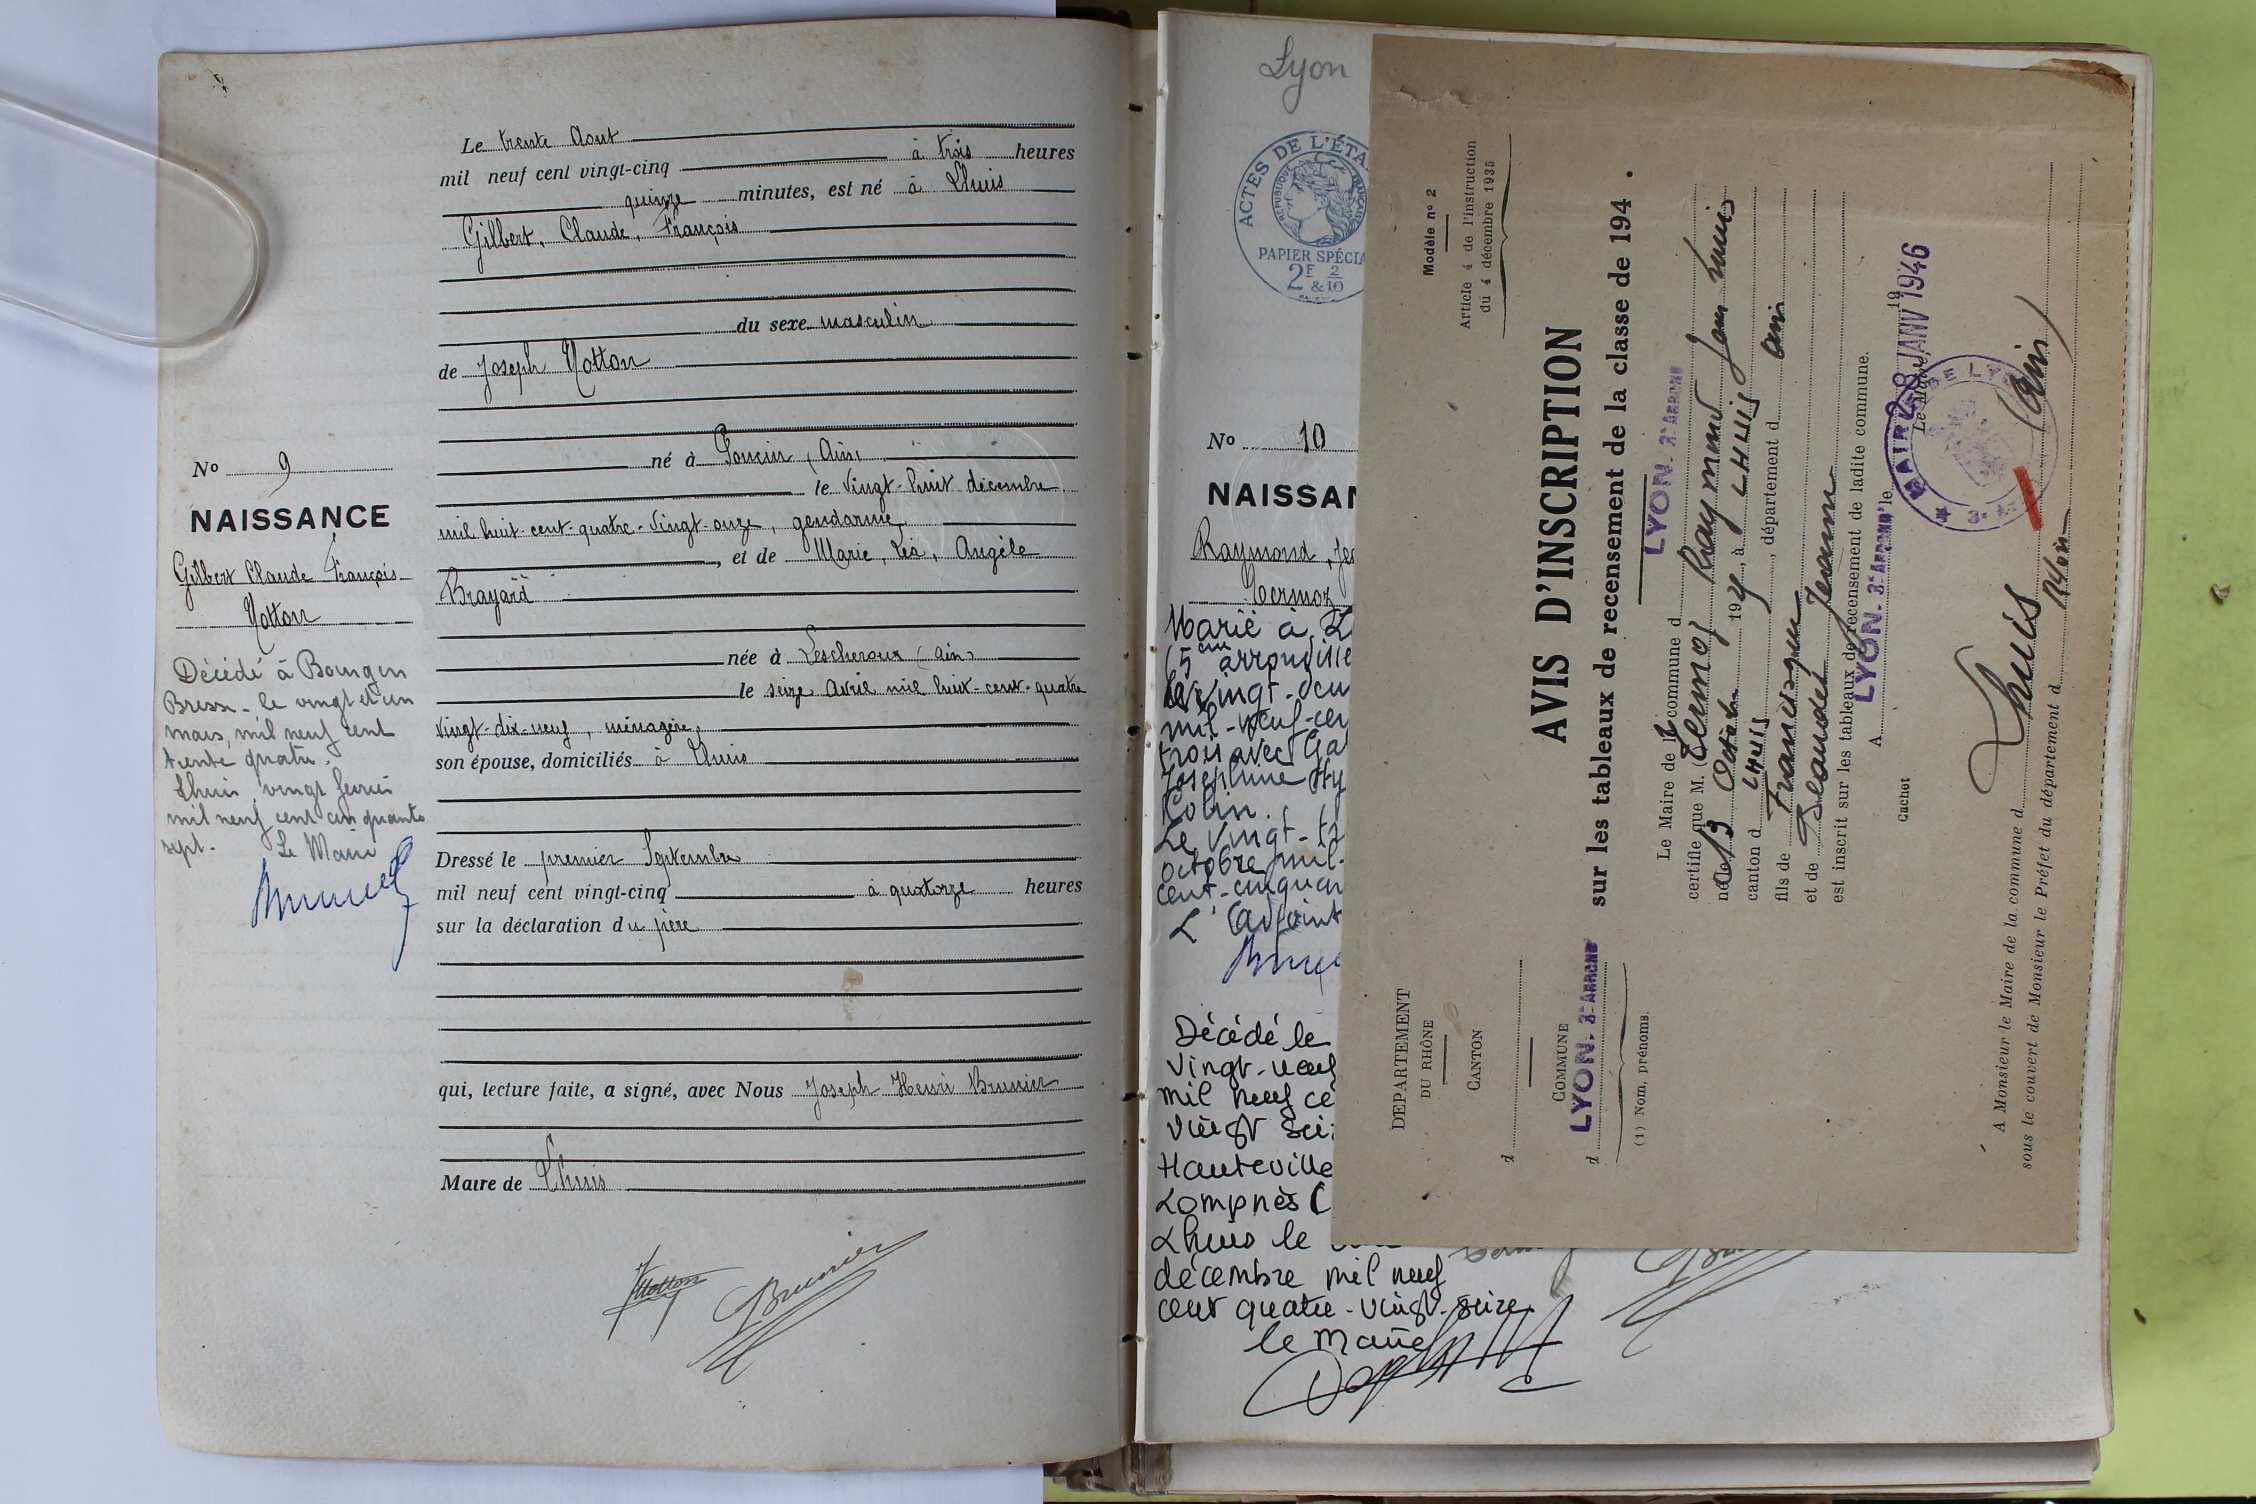 Le trente Aout
mil neuf cent vingt-cinq à trois heures
quinze minutes, est né à Lhuis
Gilbert, Claude, François
du sexe masculin
de Joseph Notton
né à Poncin (Ain)
le vingt-huit décembre
mil huit-cent-quatre-vingt-onze, gendarme,
, et de Marie, Léa, Angèle
Brayard
née à Lescheroux (Ain)
le seize Avril mil huit-cent-quatre
vingt-dix-neuf, ménagère,
son épouse, domiciliés à Lhuis
Dressé le premier Septembre
mil neuf cent vingt-cinq à quatorze heures
sur la déclaration du père
qui, lecture faite, a signé, avec Nous Joseph Henri Brunier
Maire de Lhuis
Notton Brunier
No 9
NAISSANCE
Gilbert Claude François
Notton
Décédé à Bourg en
Bresse le vingt et un
mars, mil neuf cent
trente quatre.
Lhuis vingt février
mil neuf cent cinquante
sept. Le Maire
Lyon
ACTES DE L'ÉTA
RÉPUBLIQUE FRANÇAISE
PAPIER SPÉCIA
2F 2
&10
No 10
NAISSAN
Raymond, Je
Termoz
Marié à L
(5em arrondisse
le vingt-
mil-neuf-cen
trois avec Ga
Joséphine Hy
Colin.
Le vingt-tr
octobre mil-
cent-cinquan
L'Adjoint
Décédé le
vingt-neuf
mil neuf ce
vingt sei
Hauteville
Lompnès (
Lhuis le
décembre mil neuf
cent quatre-vingt-seize.
le Maire
DÉPARTEMENT
DU RHÔNE
CANTON
d
COMMUNE
d LYON. 3e ARROND
(1) Nom, prénoms.
Modèle no 2
Article 4 de l'instruction
du 4 décembre 1935
AVIS D'INSCRIPTION
sur les tableaux de recensement de la classe de 194 .
LYON. 3e ARROND
Le Maire de la commune d
certifie que M. (1) Termoz Raymond Jean Louis
né le 13 Octob. 19 , à LHUIS
canton d LHUIS , département d Ain
fils de Francisque
et de Beaudet Jeanne
est inscrit sur les tableaux de recensement de ladite commune.
A LYON. 3e ARROND le 28 JANV 1946 19
Le Maire,
Cachet
MAIRIE DE LY
A Monsieur le Maire de la commune d Lhuis (Ain)
sous le couvert de Monsieur le Préfet du département d